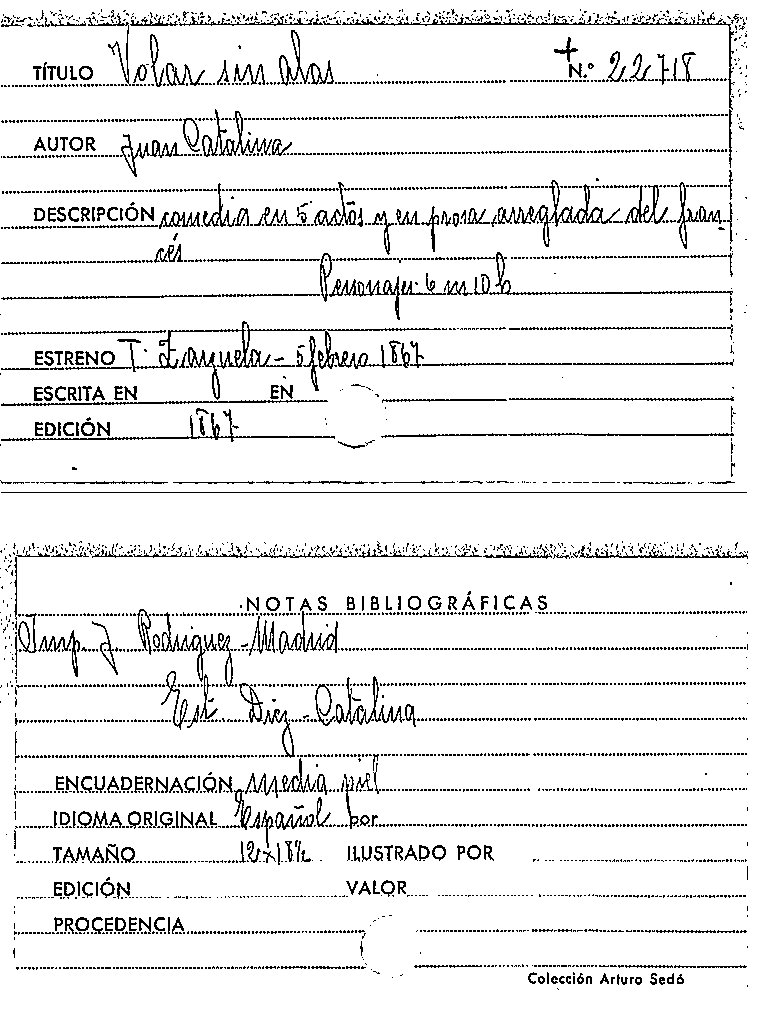 TÍTULO Volar sin alas + N.º 22718
AUTOR Juan Catalina
DESCRIPCIÓN comedia en 5 actos y en prosa arreglada del fran-
cés
Personajes 6 m 10 h
ESTRENO T. Zarzuela - 5 febrero 1867
ESCRITA EN EN
EDICIÓN 1867
NOTAS BIBLIOGRÁFICAS
Imp. J. Rodriguez - Madrid
Est. Diez - Catalina
ENCUADERNACIÓN media piel
IDIOMA ORIGINAL Español por
TAMAÑO 12 x 18½ ILUSTRADO POR
EDICIÓN VALOR
PROCEDENCIA
Colección Arturo Sedó